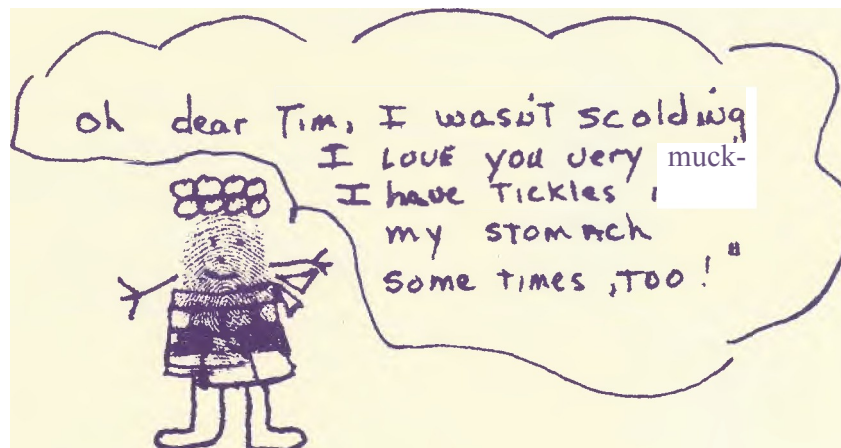 oh dear Tim, I wasn't scolding
I LOVE you very muck-
I have Tickles
my stomach
some times, Too!"